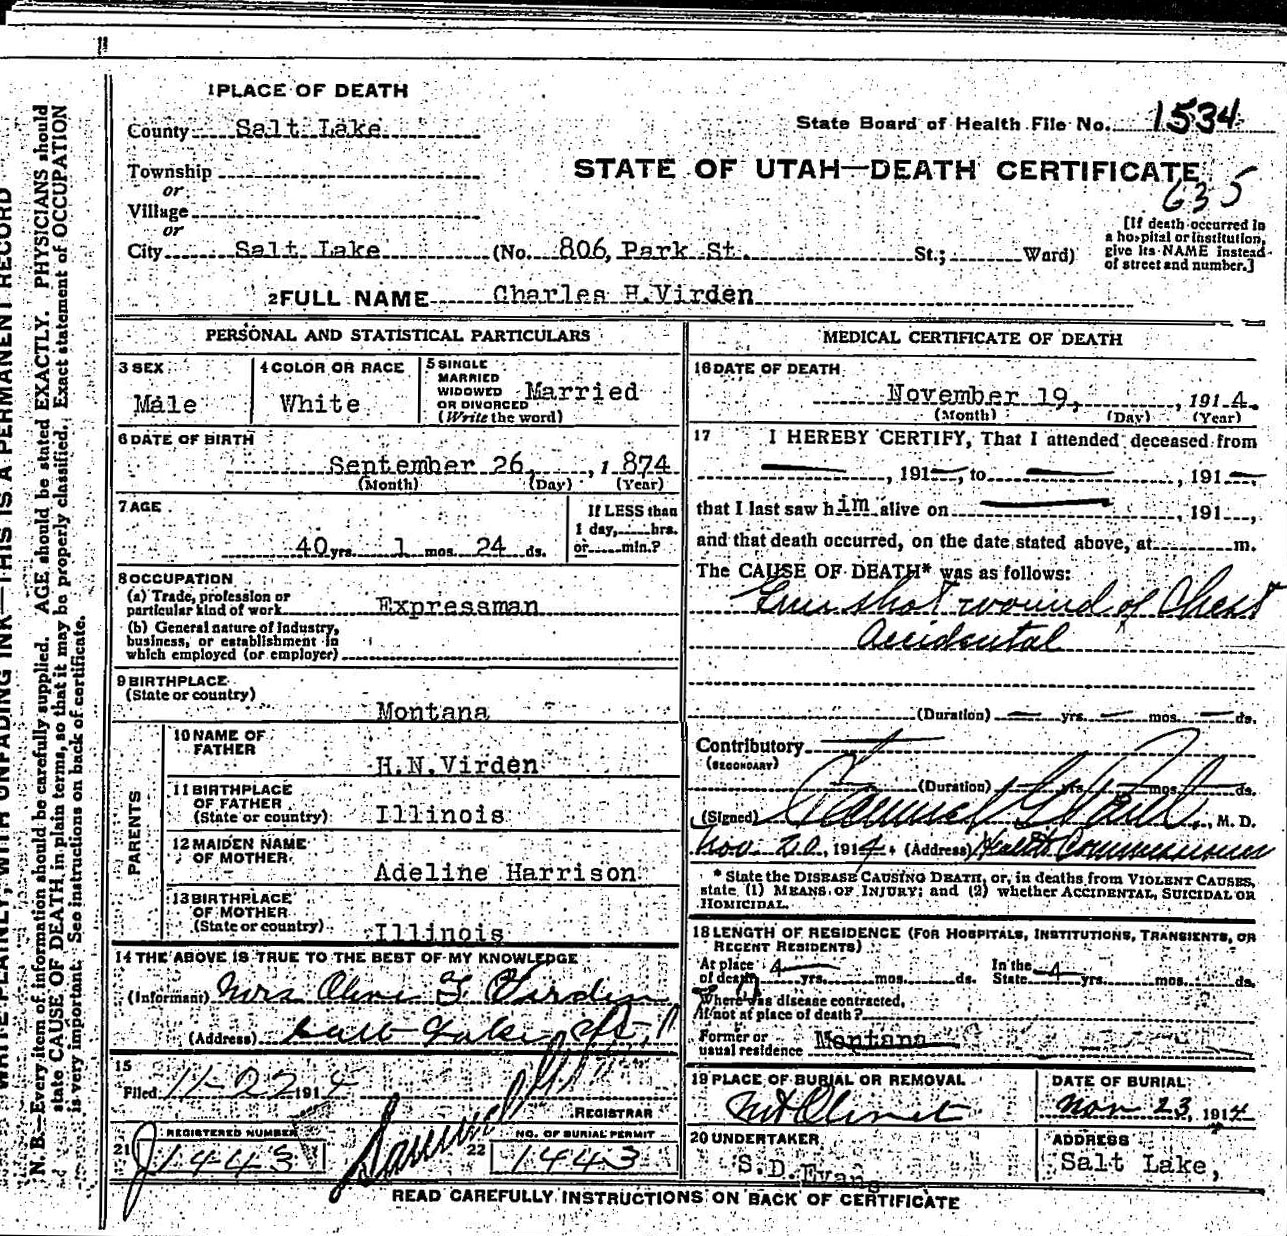 1 PLACE OF DEATH
County Salt Lake
State Board of Health File No. 1534
Township
or
Village
or
City Salt Lake (No. 806, Park St. St.; Ward)
STATE OF UTAH—DEATH CERTIFICATE
635
[If death occurred in
a hospital or institution,
give its NAME instead
of street and number.]
2 FULL NAME Charles H.Virden
PERSONAL AND STATISTICAL PARTICULARS
3 SEX
Male
4 COLOR OR RACE
White
5 SINGLE
MARRIED
WIDOWED
OR DIVORCED
(Write the word)
Married
6 DATE OF BIRTH
September 26, 1 874
(Month) (Day) (Year)
7 AGE
40 yrs. 1 mos. 24 ds.
If LESS than
1 day, hrs.
or min.?
8 OCCUPATION
(a) Trade, profession or
particular kind of work Expressman
(b) General nature of Industry,
business, or establishment in
which employed (or employer)
9 BIRTHPLACE
(State or country)
Montana
PARENTS
10 NAME OF
FATHER
H.N.Virden
11 BIRTHPLACE
OF FATHER
(State or country) Illinois
12 MAIDEN NAME
OF MOTHER
Adeline Harrison
13 BIRTHPLACE
OF MOTHER
(State or country) Illinois
14 THE ABOVE IS TRUE TO THE BEST OF MY KNOWLEDGE
(Informant) Mrs Olive F. Virden
(Address) Salt Lake City
15
Filed 11-22 1914
Samuel
REGISTRAR
21 REGISTERED NUMBER
1443
22 NO. OF BURIAL PERMIT
1443
MEDICAL CERTIFICATE OF DEATH
16 DATE OF DEATH
November 19, 1914.
(Month) (Day) (Year)
17 I HEREBY CERTIFY, That I attended deceased from
, 191 , to , 191
that I last saw him alive on , 191 ,
and that death occurred, on the date stated above, at m.
The CAUSE OF DEATH* was as follows:
Gun shot wound of Chest
accidental
(Duration) yrs. mos. ds.
Contributory
(SECONDARY)
(Duration) yrs. mos. ds.
(Signed) Samuel G. Paul, M. D.
Nov. 20, 1914. (Address) Health Commissioner
* State the DISEASE CAUSING DEATH, or, in deaths from VIOLENT CAUSES,
state (1) MEANS OF INJURY; and (2) whether ACCIDENTAL, SUICIDAL OR
HOMICIDAL.
18 LENGTH OF RESIDENCE (FOR HOSPITALS, INSTITUTIONS, TRANSIENTS, OR
RECENT RESIDENTS)
At place
of death 4 yrs. mos. ds.
In the
State 4 yrs. mos. ds.
Where was disease contracted,
if not at place of death?
Former or
usual residence Montana
19 PLACE OF BURIAL OR REMOVAL
Mt Olivet
DATE OF BURIAL
Nov 23 1914
20 UNDERTAKER
S.D.Evans
ADDRESS
Salt Lake,
READ CAREFULLY INSTRUCTIONS ON BACK OF CERTIFICATE
WRITE PLAINLY, WITH UNFADING INK—THIS IS A PERMANENT RECORD
N. B.—Every item of information should be carefully supplied. AGE should be stated EXACTLY. PHYSICIANS should
state CAUSE OF DEATH in plain terms, so that it may be properly classified. Exact statement of OCCUPATION
is very important. See instructions on back of certificate.